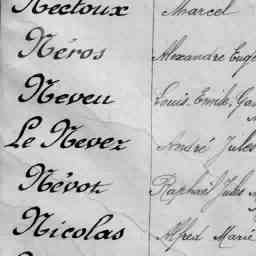 Nectoux Marcel
Néros Alexandre Eugè
Neveu Louis Emile Gas
Le Nevez André Jules
Névot Raphaël Jules
Nicolas Alfred Marie